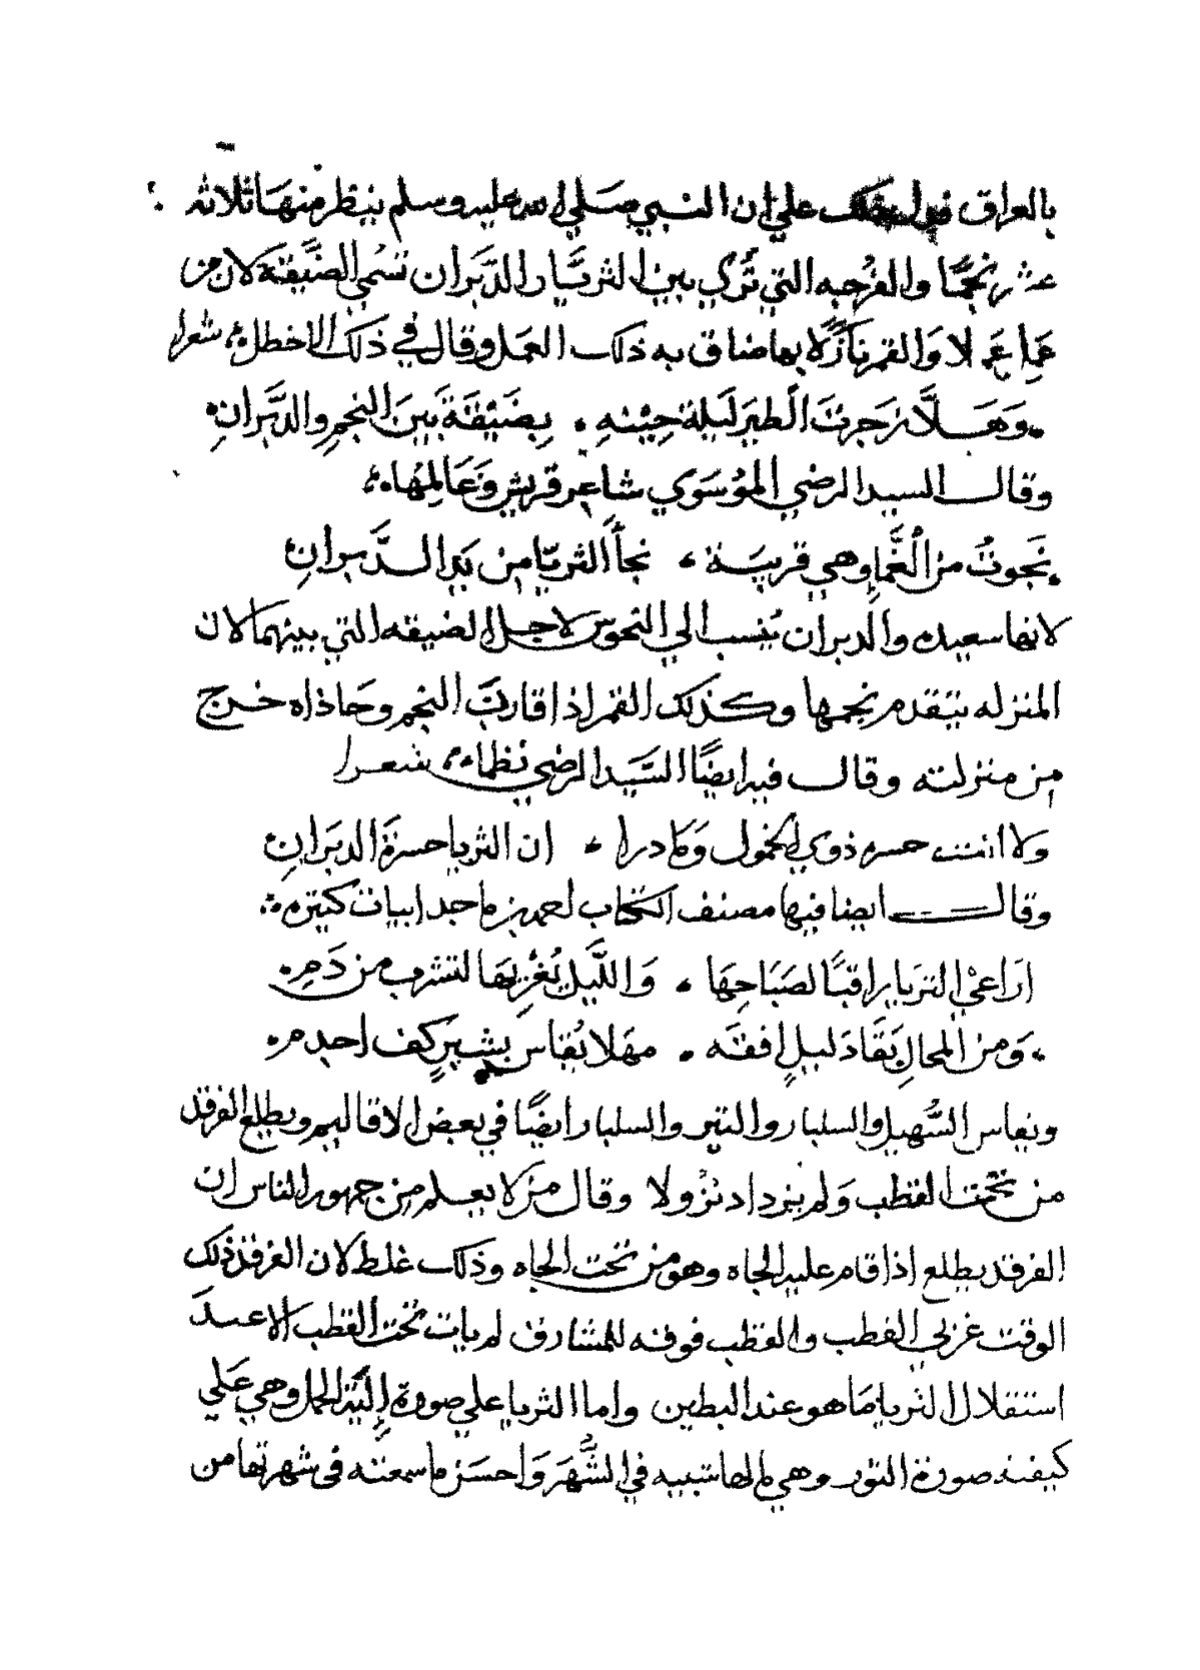 بالعراق فيدل ذلك علي ان النبي صَلي الله عليه وسلم ينظر منهَا ثلاثه
عشر نجمًا والفُرجه التي تُرَي بين الثريَّا والدَّبَران تسُمي الضَّيقة لان من
عَمِل عَملا وَالقمر نَازِلا بها ضاق به ذلك العمَل وقال في ذلك الاخطل شعرا
وَهَلَّا زجرتَ الطيرَ لَيلةَ جِيْتهِ . بِضَيْقَةَ بَينَ النجمِ والدَّبَرانِ
وقال السيد الرضي المؤسَوَي شاعر قريش وَعَالِمُهَا
نَجوتُ من الغَمَّاِ وهي قريبَة . نجأَ الثريّا من يَدِ الدَّبرانِ
لانها سعيده والدبران يُنسب الي النحوس لاجل الضيقه التي بينهما لان
المنزله يتقدم نجمها وكذلك القمر اذا قارَبَ النجم وحَاذاه خرج
من منزلته وقال فيه ايضًا السَّيد الرضي نظما شعرا
ولا انت حسره ذوي الخمول وكادرا . ان الثريا حسرَة الدبَرانِ
وقال ايضا فيها مصنف الكتاب احمد بن ماجد ابيات كثيره
ارَاعي الثريا راقبًا لصَبَاحِهَا . وَاللَّيل يُغْرِيهَا لتشرب من دَمِي
وَمِن المحالِ بَقَاءَ ليلٍ افقه . مهَلا يُقاس بشِبرِ كف احدمِ
ويقاس السُّهيل والسلبار والتير والسلبار ايضًا في بعض الاقاليم ويطلع الفرقد
من تحْت القطب وَلم يزداد نزْولا وقال من لا يعلم من جمهور الناس ان
الفرقد يطلع اذا قام عليه الجاه وهو من تحت الجاه وذلك غلط لان الفرقد ذلك
الوقت غربي القطب والقطب فوقه للمشارق لم يات تحت القطب الا عند
استقلال الثريا مَا هو عند البطين واما الثريا علي صورة اِليَة الحمل وهي عَلي
كيفية صورة الثور وهي لما لها تشبيه في الشُّهرَ وَاحسَن ما سمعته في شهرتها من